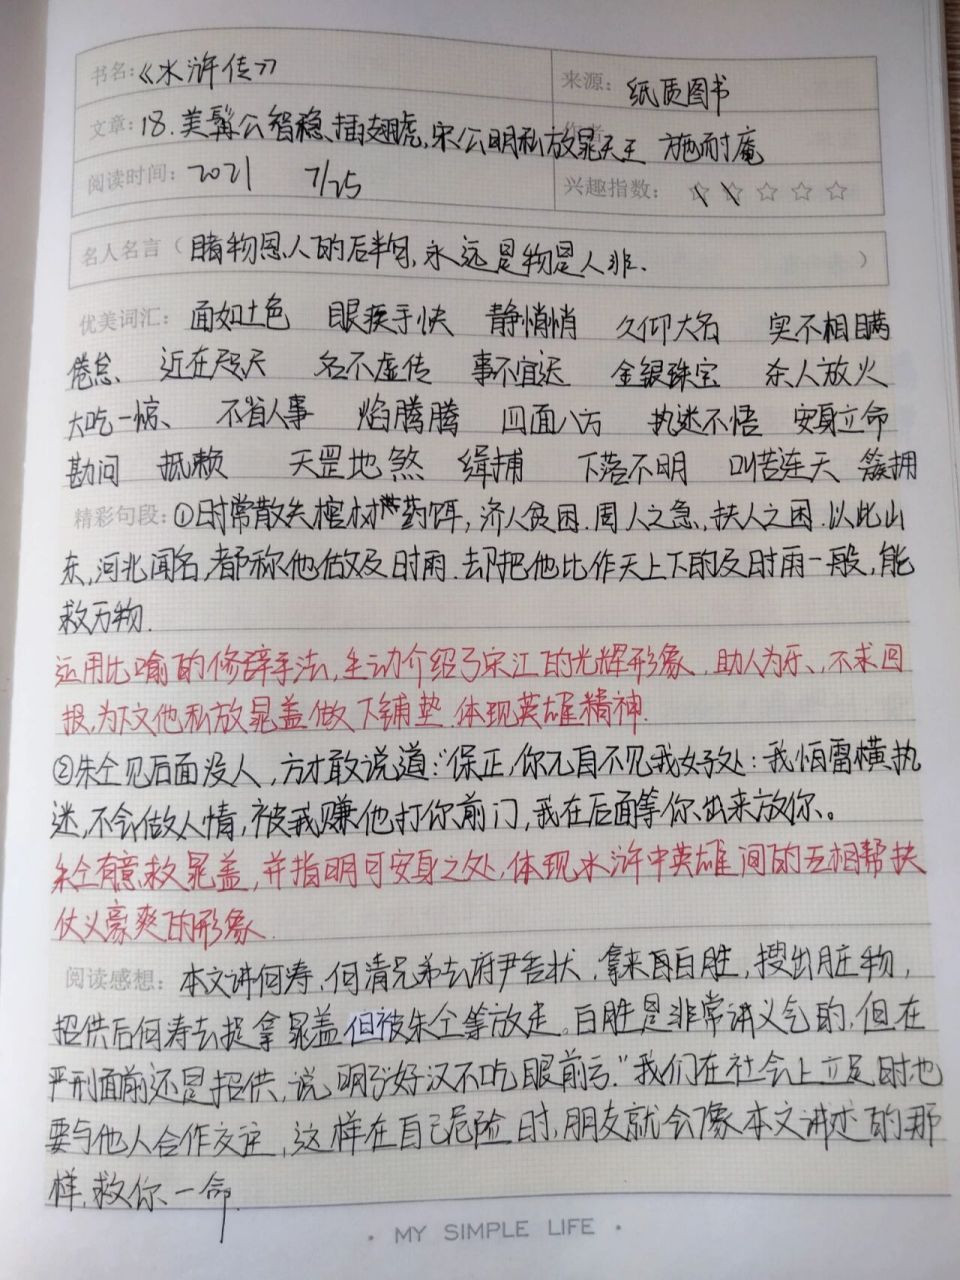 书名：《水浒传》 来源：纸质图书
文章：18.美髯公智稳插翅虎，宋公明私放晁天王 作者 施耐庵
阅读时间：2021 7/25 兴趣指数：☆☆☆☆☆
名人名言（睹物思人的后半句，永远是物是人非.）
优美词汇：面如土色 眼疾手快 静悄悄 久仰大名 实不相瞒
倦怠、 近在咫尺 名不虚传 事不宜迟 金银珠宝 杀人放火
大吃一惊、 不省人事 焰腾腾 四面八方 执迷不悟 安身立命
勘问 抵赖 天罡地煞 缉捕 下落不明 叫苦连天 簇拥
精彩句段：①时常散失棺材药饵，济人贫困.周人之急，扶人之困.以此山
东，河北闻名，都称他做及时雨.却把他比作天上下的及时雨一般，能
救万物.
运用比喻的修辞手法，生动介绍了宋江的光辉形象，助人为乐、不求回
报，为下文他私放晁盖做下铺垫.体现英雄精神.
②朱仝见后面没人，方才敢说道：“保正，你兀自不见我好处：我怕雷横执
迷，不会做人情，被我赚他打你前门，我在后面等你出来放你。
朱仝有意救晁盖，并指明可安身之处，体现水浒中英雄间的互相帮扶
仗义豪爽的形象.
阅读感想：本文讲何涛，何清兄弟去府尹告状，拿来白胜，搜出脏物，
招供后何涛去捉拿晁盖但被朱仝等放走。白胜是非常讲义气的，但在
严刑面前还是招供，说明了“好汉不吃眼前亏.”我们在社会上立足时也
要与他人合作交谊，这样在自己危险时，朋友就会像本文讲述的那
样，救你一命.
· MY SIMPLE LIFE ·